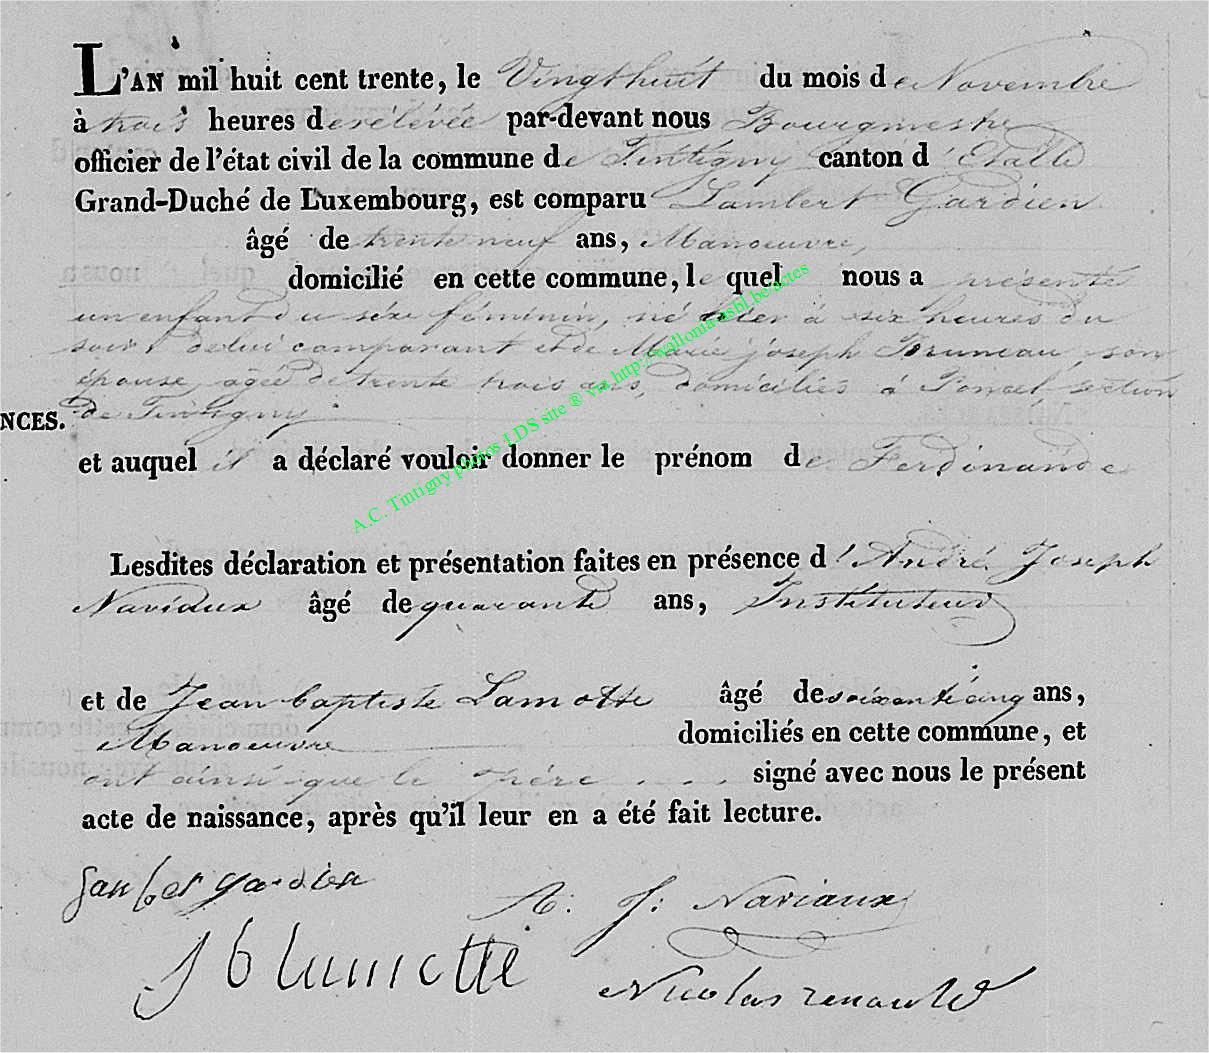 L'AN mil huit cent trente, le Vingt huit du mois de Novembre
à trois heures de rélévée par-devant nous Bourgmestre
officier de l'état civil de la commune de Tintigny canton d'Etalle
Grand-Duché de Luxembourg, est comparu Lambert Gardien
âgé de trente neuf ans, Manoeuvre,
domicilié en cette commune, le quel nous a présenté
un enfant du séxe féminin, né hier à six heures du
soir, de lui comparant et de Marie joseph Bruneau son
épouse, agée de trente trois ans, domiciliés à Poncel, section
NCES. de Tintigny
et auquel il a déclaré vouloir donner le prénom de Ferdinande
Lesdites déclaration et présentation faites en présence d'André Joseph
Naviaux âgé de quarante ans, Instituteur
et de Jean baptiste Lamotte âgé de soixante cinq ans,
Manoeuvre domiciliés en cette commune, et
ont ainsi que le père signé avec nous le présent
acte de naissance, après qu'il leur en a été fait lecture.
gardien
A. J: Naviaux
J b lamotte
Nicolas renauld
A.C. Tintigny photos LDS site ® via http://wallonia-asbl.be/actes